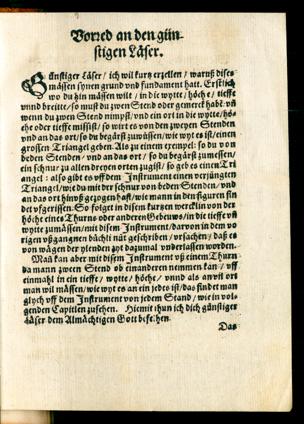 Vorred an den gün-
stigen Läser.
Günstiger Läser / ich wil kurtz erzellen / warumb dises
mässen synen grund und fundament hatt. Erstlich
wo du ein mässen wilt / in die wytte / höche / tieffe
unnd breitte / so must du zwen Stend oder gemerck habē uñ
wenn du zwen Stend nimpst / und ein ort in die wytte / hö-
che oder tieffe missist / so wirt es von den zweyen Stenden
und an das ort / so du begärst zuwüssen / wie wyt es ist / einen
grossen Triangel geben. Als zu einem exempel: so du von
beden Stenden / und an das ort / so du begärst zumessen /
ein schnur zu allen dryen orten zugist / so geb es einen Tri
angel: also gibt es uff dem Instrument einen verjüngten
Triangel / wie du mit der schnur von beden Stenden / und
an das ort hinuß gezogen hast / wie mann in den figuren fin
det ufgerissen. So folget in disem kurtzen wercklin von der
höche eines Thurns oder anderen Gebuws / in die tieffe uñ
wytte zumässen / mit disem Instrument / darvon in dem vo
rigen ußgangnen büchli nüt geschriben / ursachen / daß es
von wägen der ylenden zyt dazumal underlassen worden.
Mañ kan aber mit disem Instrument uß einem Thurn
da mann zween Stend ob einanderen nemmen kan / uff
einmahl in ein tieffe / wytte / höche / unnd als an vil ort
man wil mässen / wie wyt es an ein jedes ist / das findet man
glych uff dem Instrument von jedem Stand / wie in vol-
genden Capitlen zusehen. Hiemit thun ich dich günstiger
Läser dem Almächtigen Gott befehen.
Das